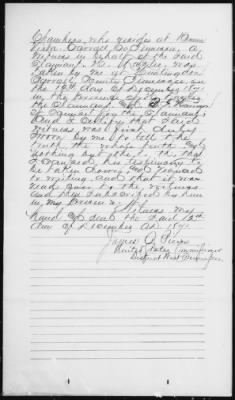 Chambers who resides at Buena
Vista Carroll Co Tennessee, a
Witness in behalf of the said
Claimant
taken by me at Huntingdon
Carroll County Tennessee on
the 12th day of December 1871
in the presence of
the Claimant
for the Claimant,
and I certify that said
witness was first duly
sworn by me to tell the
truth, the whole truth, and
nothing but the truth that
I caused his testimony to
be taken down and reduced
to writing and that it was
read over to the witness
and then subscribed by him
in my presence. Witness my
hand and seal the said 12th
day of December AD 1871
James
United States Commissioner
District West Tennessee